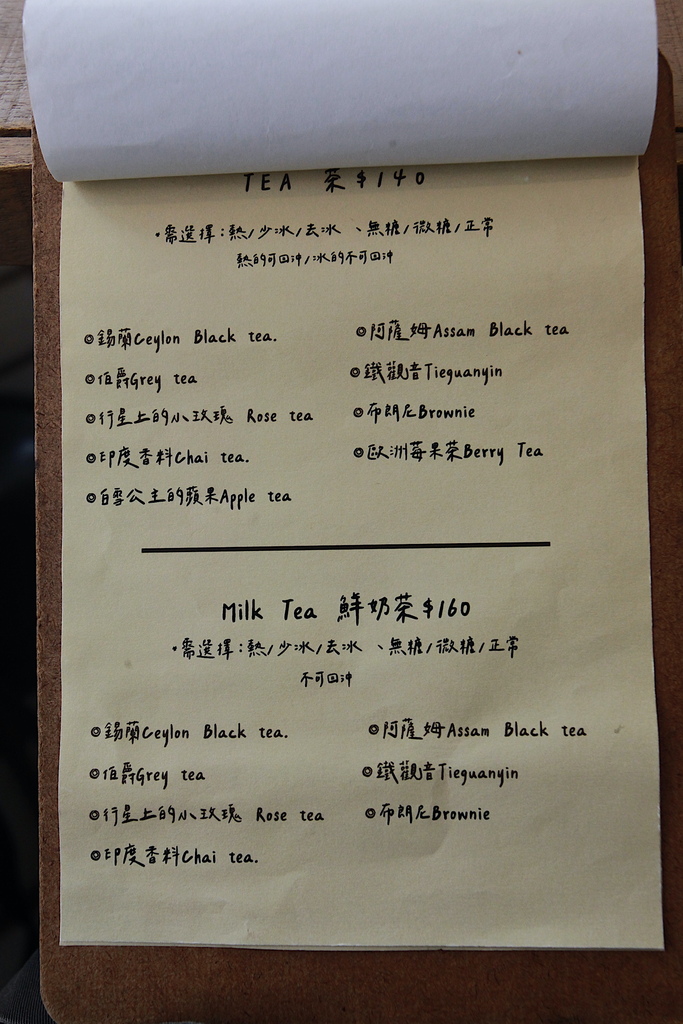 TEA 茶 $140
·需選擇:熱/少冰/去冰、無糖/微糖/正常
熱的可回沖/冰的不可回沖
◎錫蘭Ceylon Black tea.
◎阿薩姆Assam Black tea
◎伯爵Grey tea
◎鐵觀音Tieguanyin
◎行星上的小玫瑰 Rose tea
◎布朗尼Brownie
◎印度香料Chai tea.
◎歐洲莓果茶Berry Tea
◎白雪公主的蘋果Apple tea
Milk Tea 鮮奶茶$160
·需選擇:熱/少冰/去冰、無糖/微糖/正常
不可回沖
◎錫蘭Ceylon Black tea.
◎阿薩姆Assam Black tea
◎伯爵Grey tea
◎鐵觀音Tieguanyin
◎行星上的小玫瑰 Rose tea
◎布朗尼Brownie
◎印度香料Chai tea.